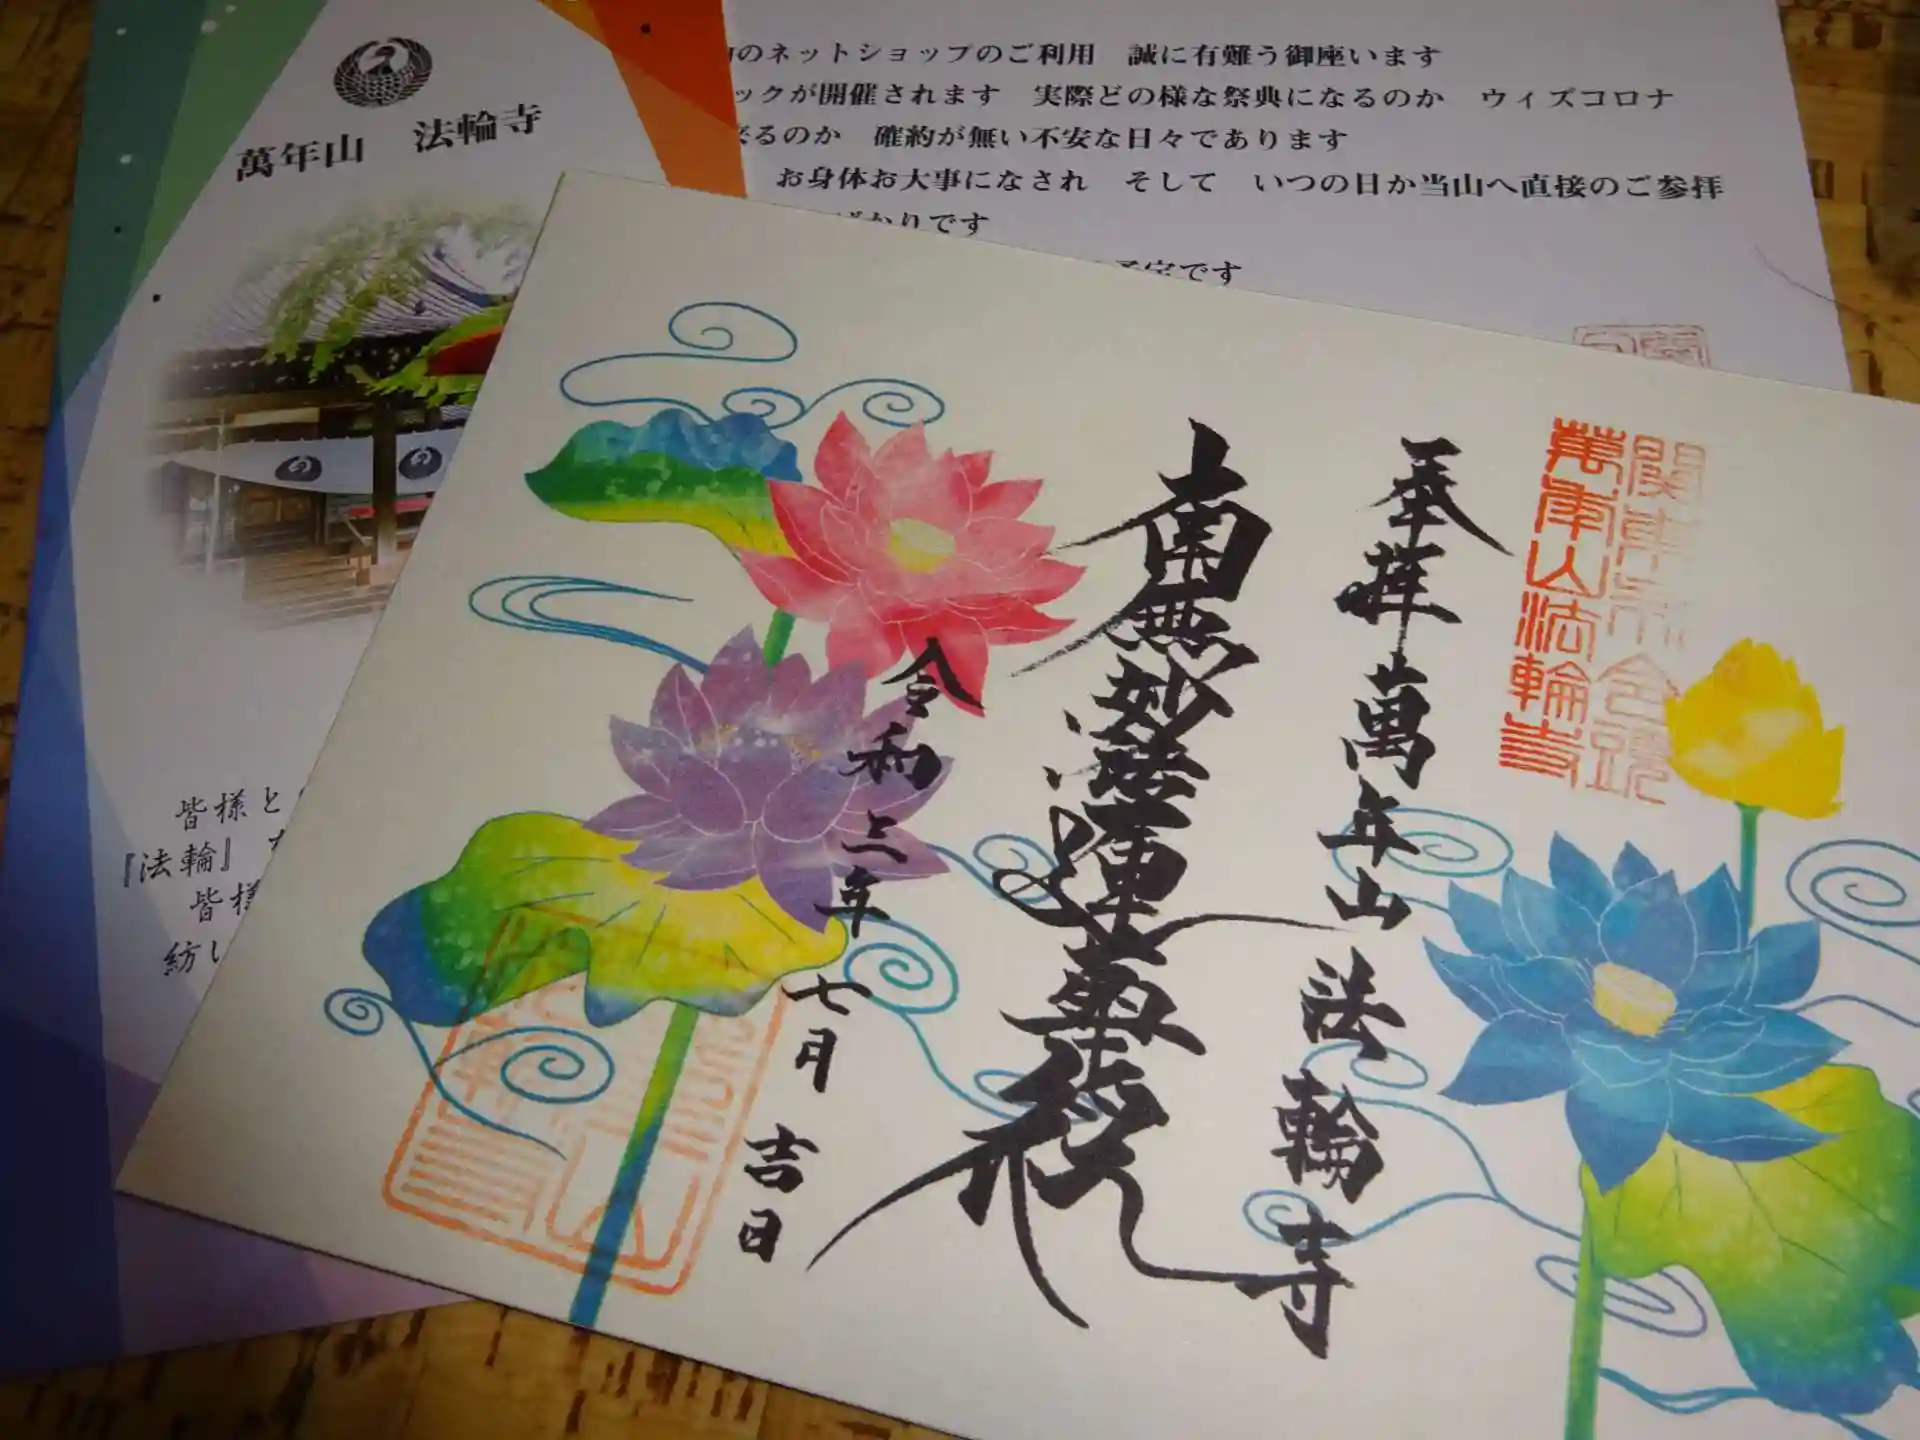 萬年山 法輪寺
のネットショップのご利用 誠に有難う御座います
ックが開催されます 実際どの様な祭典になるのか ウィズコロナ
るのか 確約が無い不安な日々であります
お身体お大事になされ そして いつの日か当山へ直接のご参拝
かりです
予定です
皆様と
『法輪』
皆様
紡い
萬年山法輪寺
奉拝 萬年山 法輪寺
南無妙法蓮華経
令和三年 七月 吉日